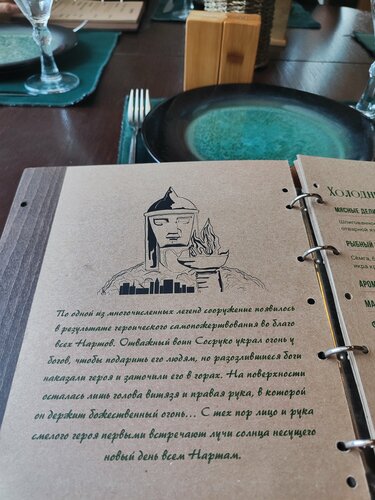 По одной из многочисленных легенд сооружение появилось
в результате героического самопожертвования во благо
всех Нартов. Отважный воин Сосруко украл огонь у
богов, чтобы подарить его людям, но разозлившиеся боги
наказали героя и заточили его в горах. На поверхности
осталась лишь голова витязя и правая рука, в которой
он держит божественный огонь... С тех пор лицо и рука
смелого героя первыми встречают лучи солнца несущего
новый день всем Нартам.
МЯСНЫЕ
РЫБНЫЙ